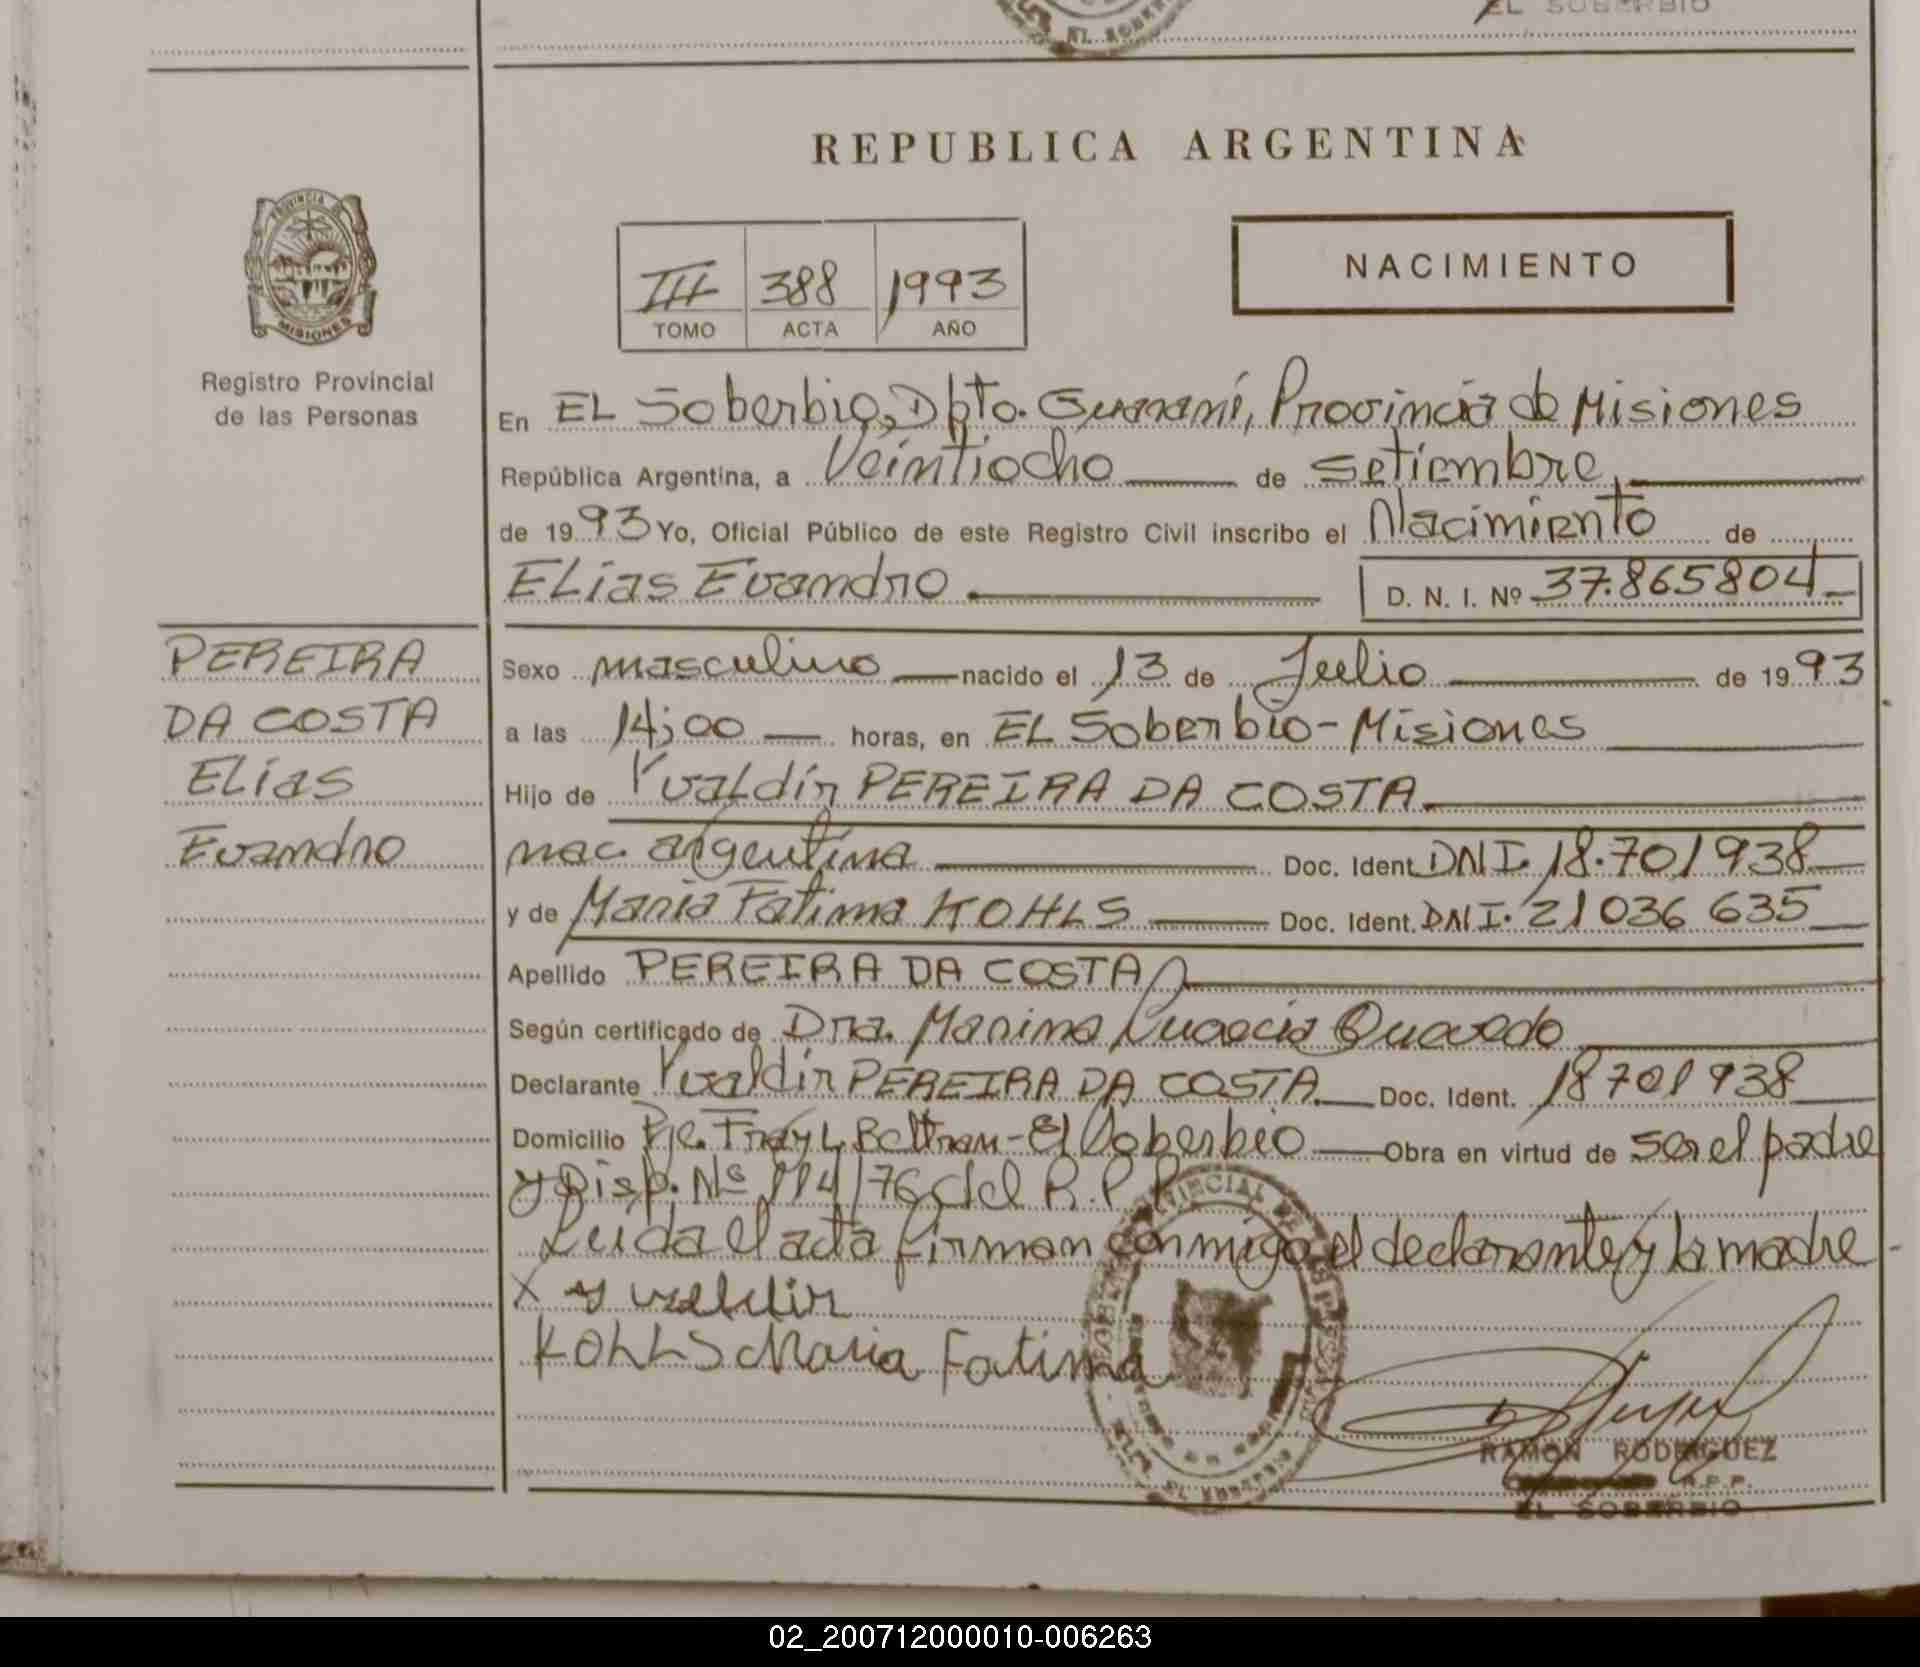 EL SOBERBIO
EL SOBERBIO
REPUBLICA ARGENTINA
PROVINCIA DE
MISIONES
Registro Provincial
de las Personas
III 388 1993
TOMO ACTA AÑO
NACIMIENTO
En EL Soberbio, Dpto. Guaraní, Provincia de Misiones
República Argentina, a Veintiocho de Setiembre
de 1993 Yo, Oficial Público de este Registro Civil inscribo el Nacimiento de
ELias Evandro D. N. I. Nº 37.865804
PEREIRA
DA COSTA
ELias
Evandro
Sexo masculino nacido el 13 de Julio de 1993
a las 14;00 horas, en EL Soberbio - Misiones
Hijo de Yvaldir PEREIRA DA COSTA
nac. argentina Doc. Ident. DNI. 18.701938
y de Maria Fatima KOHLS Doc. Ident. DNI. 21036 635
Apellido PEREIRA DA COSTA
Según certificado de Dra. Marina
Declarante Yvaldir PEREIRA DA COSTA Doc. Ident. 18701938
Domicilio Pje. Fray L Beltran - El Soberbio Obra en virtud de ser el padre
y Disp. Nº 114/76 del R.P.P.
Leida el acta firman conmigo el declarante y la madre
X yvaldir
KOHLS Maria Fatima
RAMON RODRIGUEZ
R.P.P.
EL SOBERBIO
02_200712000010-006263